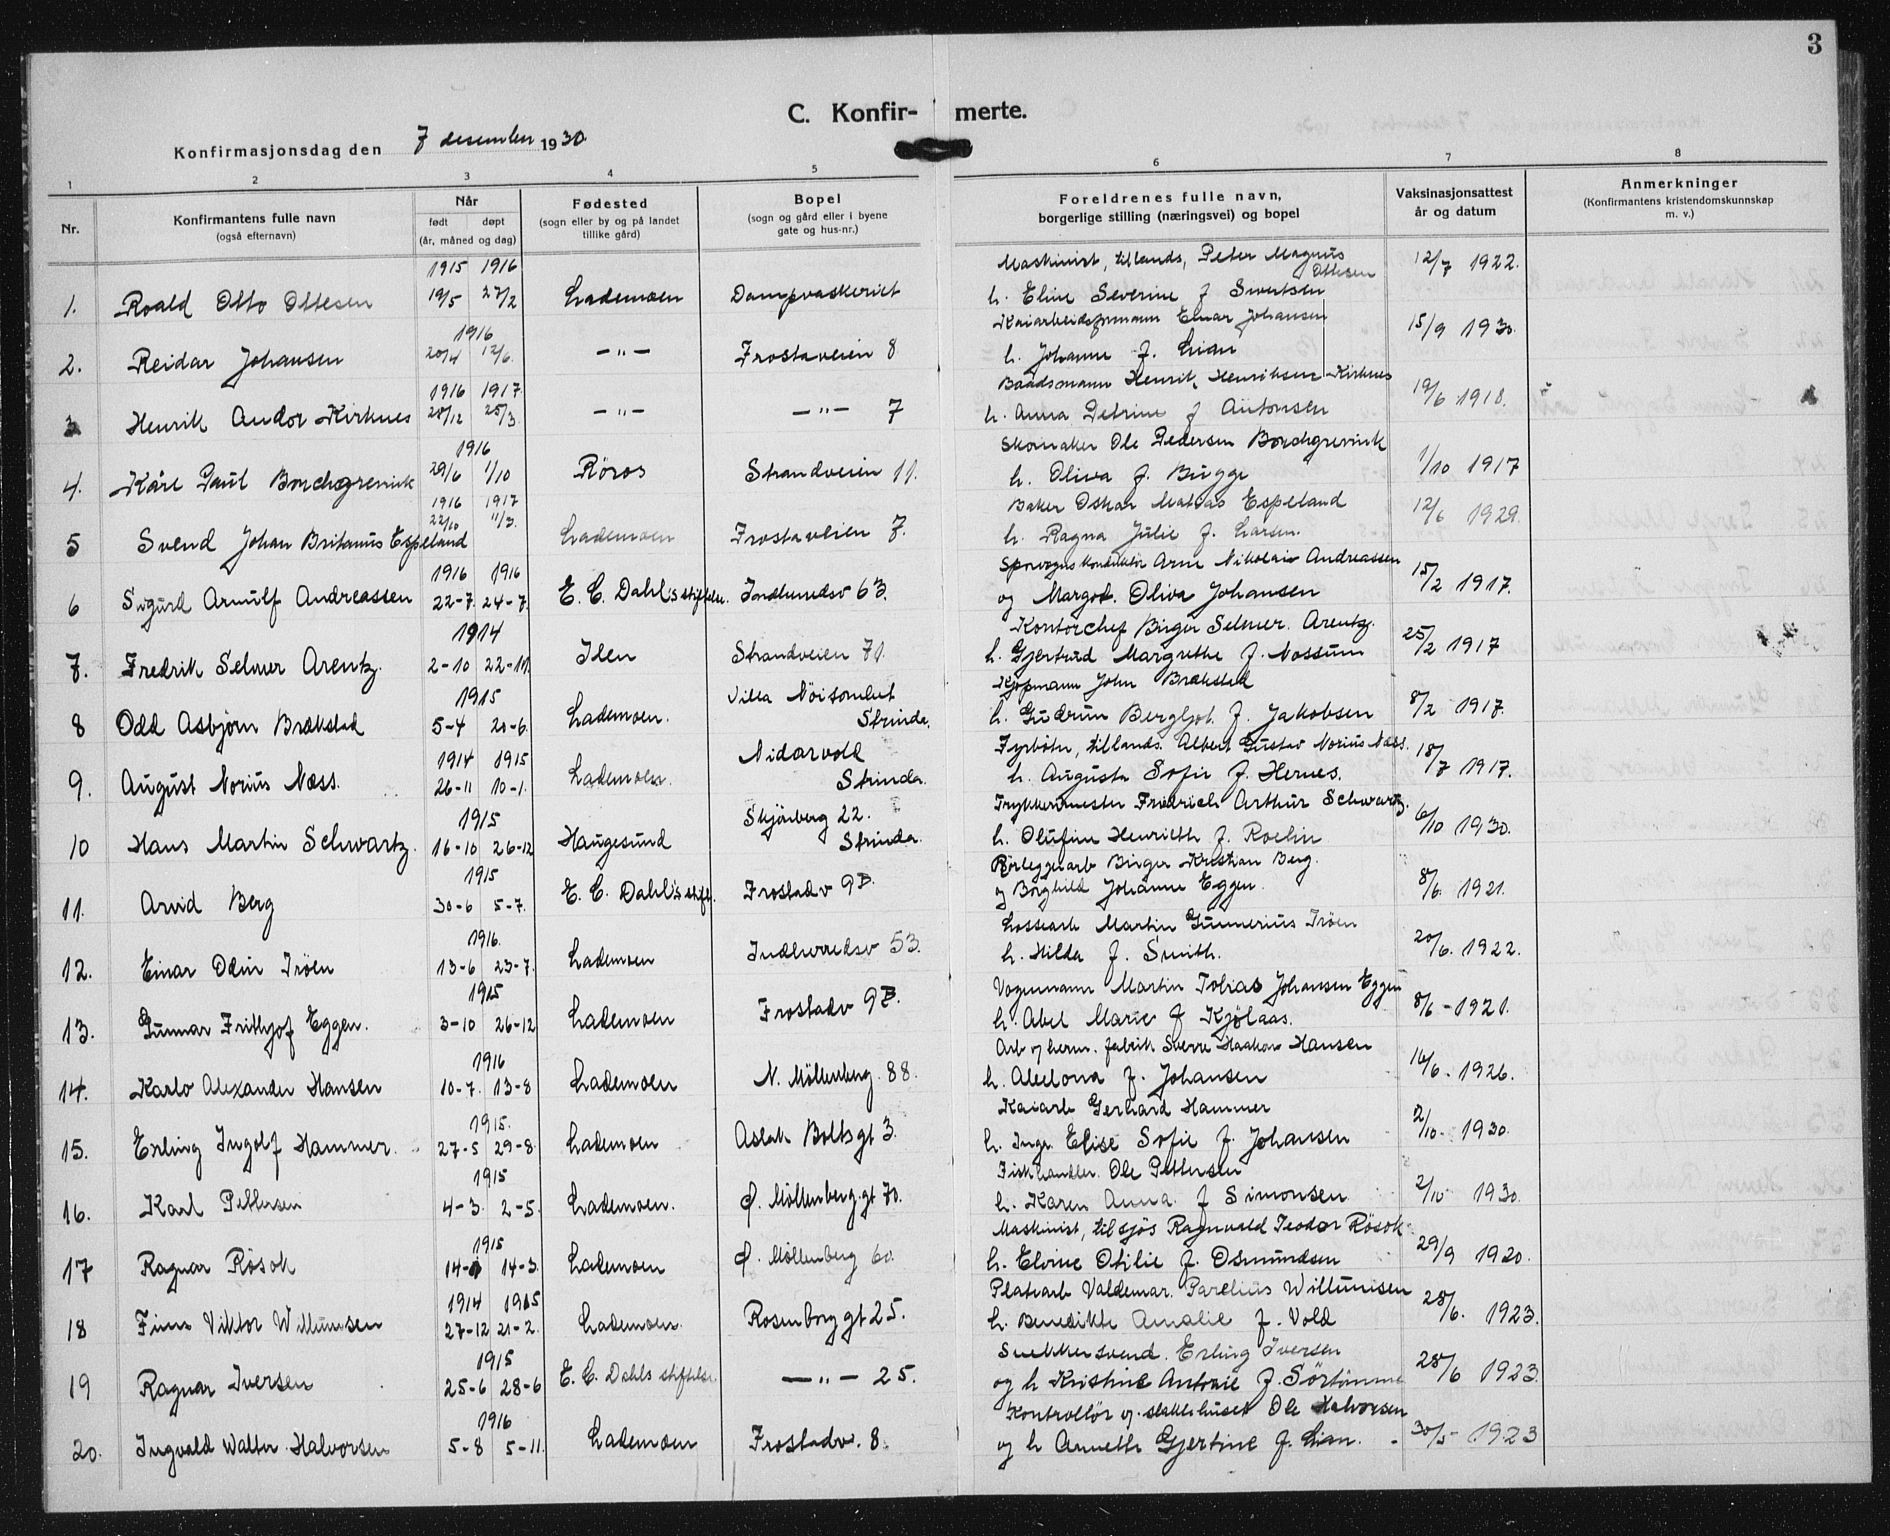 3
C. Konfirmerte.
Konfirmasjonsdag den 7 desember 1930
1 2 3 4 5 6 7 8
Nr.
Konfirmantens fulle navn
(også efternavn)
Når
født døpt
(år, måned og dag)
Fødested
(sogn eller by og på landet
tillike gård)
Bopel
(sogn og gård eller i byene
gate og hus-nr.)
Foreldrenes fulle navn,
borgerlige stilling (næringsvei) og bopel
Vaksinasjonsattest
år og datum
Anmerkninger
(Konfirmantens kristendomskunnskap
m. v.)
1915 1916 Maskinist, tillands, Peter Magnus Ottesen 12/7 1922.
1. Roald Otto Ottesen 19/5 27/2 Lademoen Dampvaskeriet h. Eline Severine f Sivertsen
1916 Kaiarbeidsformann Einar Johansen 15/9 1930.
2. Reidar Johansen 20/4 12/6. —"— Frostaveien 8 h. Johanne f. Lian
1916 1917. Baadsmann Henrik Henriksen Kirknes 19/6 1918.
3 Henrik Andor Kirknes 28/12 25/3. —"— —"— 7 h. Anna Petrine f Antonsen
1916 Skomaker Ole Pedersen Borchgrevink 1/10 1917
4. Kåre Paul Borchgrevink 29/6 1/10 Röros Strandveien 11. h. Oliva f. Bugge
1916 1917 Baker Oskar Matias Espeland 12/6 1929.
5 Svend Johan Britanus Espeland 22/10 11/3. Lademoen Frostaveien 7. h. Ragna Julie f. Larsen.
1916 1916 Sporvognskonduktör Arne Nikolai Andreassen 15/2 1917.
6 Sigurd Arnulf Andreassen 22-7. 24-7. E. C. Dahl's stiftelse. Indherredsv 63. og Margot. Oliva Johansen
1914 Kontorchef Birger Selmer Arentz. 25/2 1917
7. Fredrik Selmer Arentz 2-10 22-11. Ilen Strandveien 71. h. Gjertrud Margrethe f. Nossum
1915 Villa Kjöpmann John Brækstad 8/2 1917.
8 Odd Asbjörn Brækstad 5-4 20-6. Lademoen. Strinda. h. Gudrun Bergljot f. Jakobsen
1914 1915 Nidarvoll Fyrböter, tillands. Albert Gustav Norius Næss. 18/7 1917.
9. August Norius Næss. 26-11 10-1. Lademoen. Strinda. h. Augusta Sofie f. Hernes.
1915 Skjörberg 22. Trykkerimester Fredrich Arthur Schwartz. 6/10 1930.
10 Hans Martin Schwartz. 16-10 26-12 Haugesund Strinda. h. Olufine Henriette f.
1915 Rörleggerarb Birger Kristian Berg. 8/6. 1921.
11. Arvid Berg 30-6 5-7. E. C. Dahl's stift. Frostadv 9B. og Borghild Johanne Eggen.
1916. Lossearb Martin Gunnerius Tröen 20/6. 1922.
12. Einar Odin Tröen 13-6 23-7. Lademoen Indherredsv 53. h. Hilda f. Smith.
1915 Vognmann Martin Tobias Johansen Eggen 8/6 - 1921.
13. Gunnar Frithjof Eggen. 3-10 26-12 Lademoen Frostadv 9B. h. Abel Marie f Kjölaas.
1916 Arb v/ herm. fabrik Sverre Haakon Hansen 16/6. 1926.
14. Karlo Alexander Hansen 10-7. 13-8 Lademoen N. Möllenberg. 88. h. Abelona f. Johansen
1915. Kaiarb Gerhard Hammer 2/10. 1930.
15. Erling Ingolf Hammer. 27-5 29-8. Lademoen Aslak Boltsgt 3. h. Inga Elise Sofie f. Johansen
1915 Fiskhandler Ole Pettersen 2/10 1930.
16. Karl Pettersen 4-3. 2-5. Lademoen. Ø. Möllenberg.gt 70. h. Karen Anna f Simonsen
1915 Maskinist, tilsjös Ragnvald Teodor Rösok 29/9 1920.
17 Ragnar Rösok 14-1 14-3. Lademoen Ø. Möllenberg 60. h. Elvine Otilie f. Osmundsen
1914 1915 Platearb Valdemar. Parelius Willumsen 28/6. 1923.
18 Finn Viktor Willumsen 27-12 21-2. Lademoen. Rosenborg gt 25. h. Benedikte Amalie f. Vold
1915 Snekkersvend. Erling Iversen 28/6 1923.
19 Ragnar Iversen 25-6 28-6 E. C. Dahls stiftelse —"— 25. og h Kristine Antonie f. Sörtömme
1916 Kontrollör v. slaktehuset Ole Halvorsen 30/5 1923
20. Ingvald Walter Halvorsen 5-8 5-11. Lademoen Frostadv. 8. og h Annette Gjertine f. Lian.